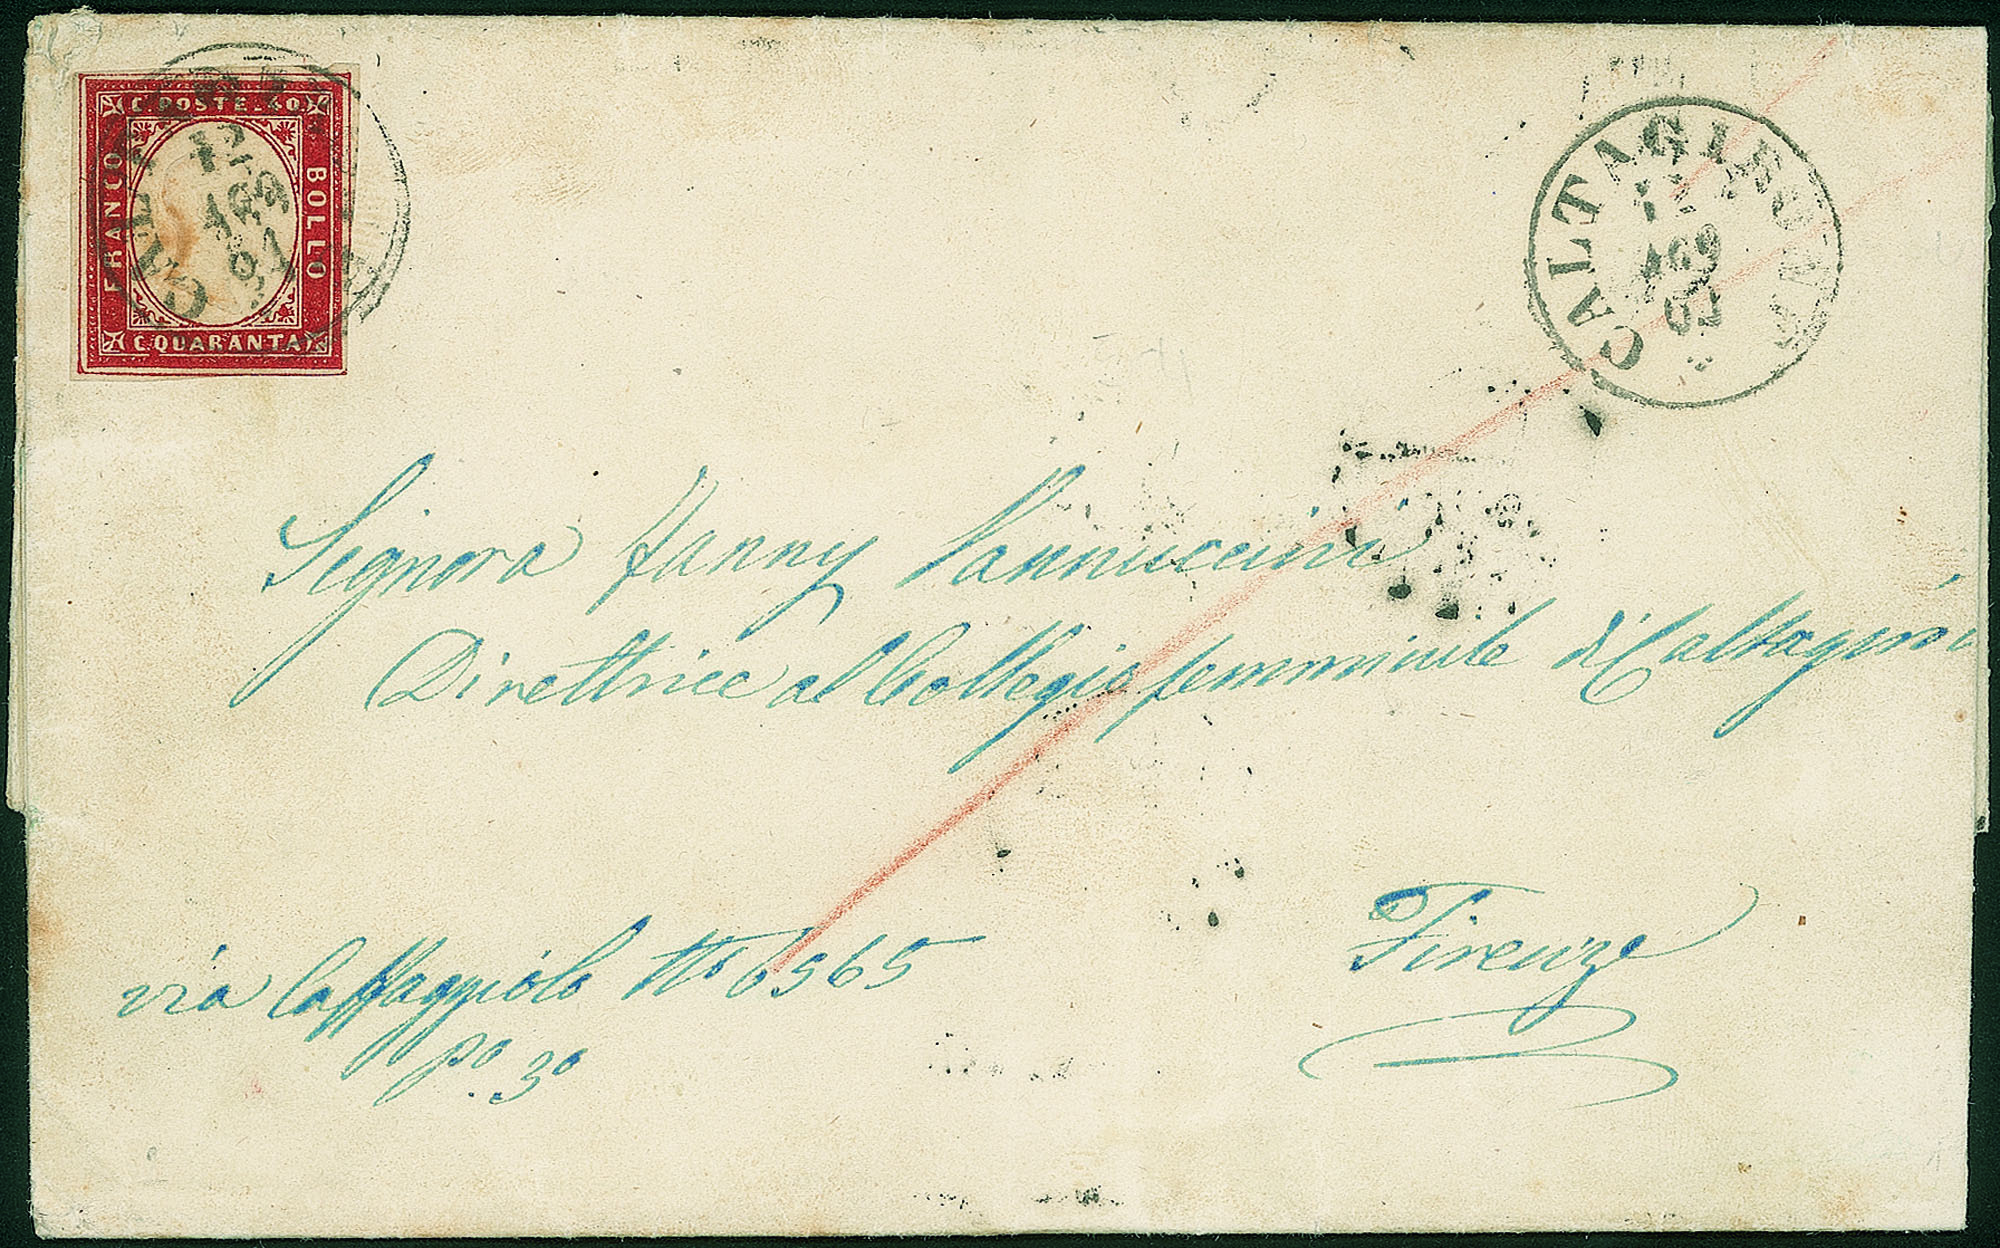 C. POSTE. 40
FRANCO
BOLLO
C. QUARANTA
12
AGO
61
CALTAGIRONE
12
AGO
61
Signora Fanny Vannuccini
Direttrice al Collegio femminile di Caltagiri
Firenze
via Caffaggiolo No 6565
po. 3o